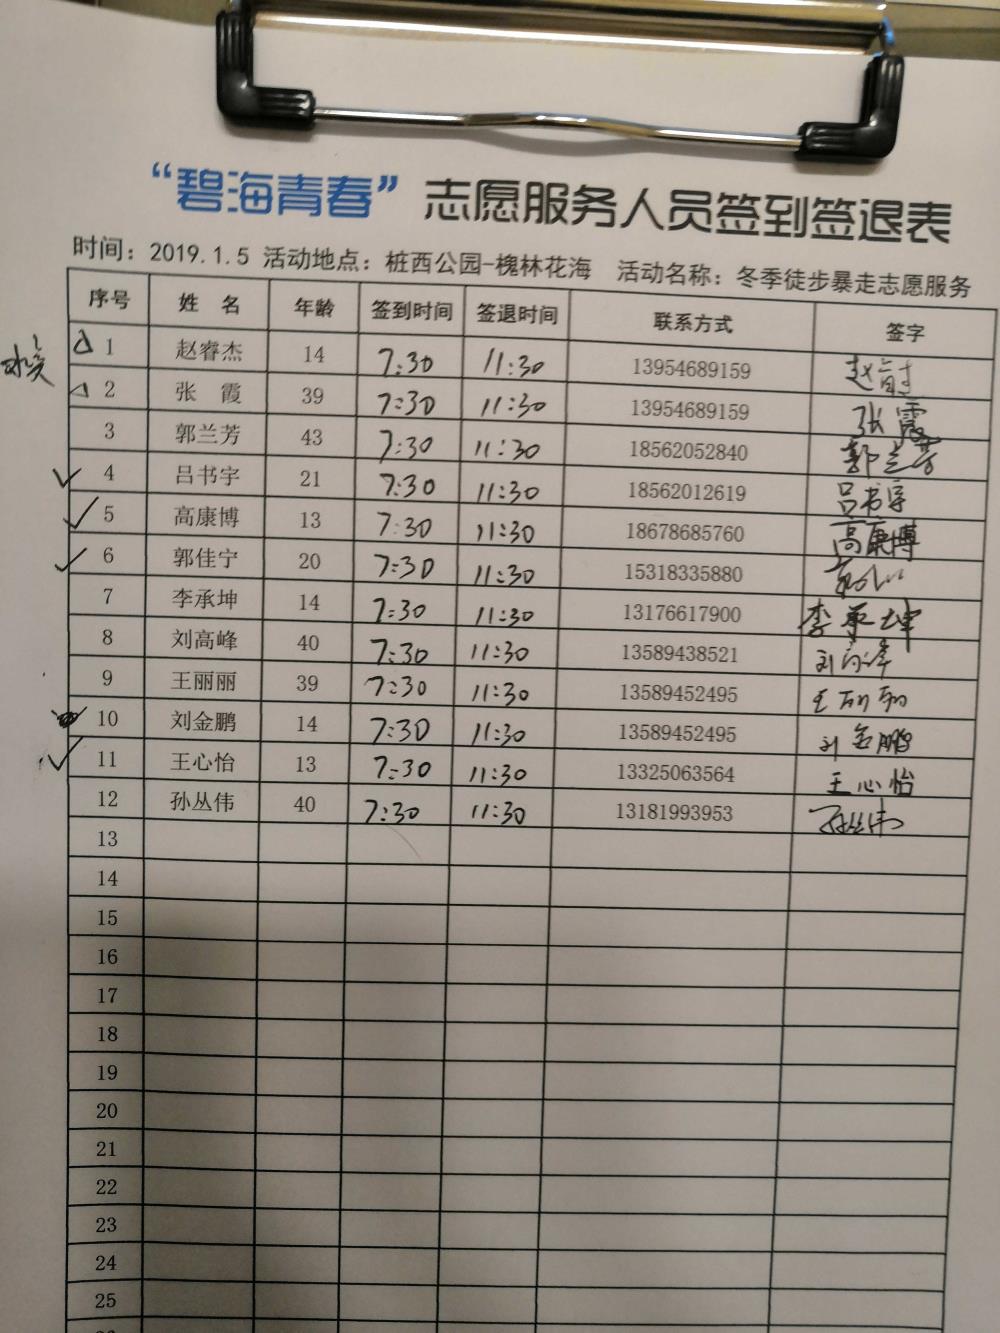 “碧海青春”志愿服务人员签到签退表
时间：2019.1.5 活动地点：桩西公园-槐林花海 活动名称：冬季徒步暴走志愿服务
序号 姓 名 年龄 签到时间 签退时间 联系方式 签字
1 赵睿杰 14 7:30 11:30 13954689159
2 张 霞 39 7:30 11:30 13954689159 张霞
3 郭兰芳 43 7:30 11:30 18562052840 郭兰芳
4 吕书宇 21 7:30 11:30 18562012619 吕书宇
5 高康博 13 7:30 11:30 18678685760 高康博
6 郭佳宁 20 7:30 11:30 15318335880
7 李承坤 14 7:30 11:30 13176617900 李承坤
8 刘高峰 40 7:30 11:30 13589438521 刘高峰
9 王丽丽 39 7:30 11:30 13589452495 王丽丽
10 刘金鹏 14 7:30 11:30 13589452495 刘金鹏
11 王心怡 13 7:30 11:30 13325063564 王心怡
12 孙丛伟 40 7:30 11:30 13181993953 孙丛伟
13
14
15
16
17
18
19
20
21
22
23
24
25